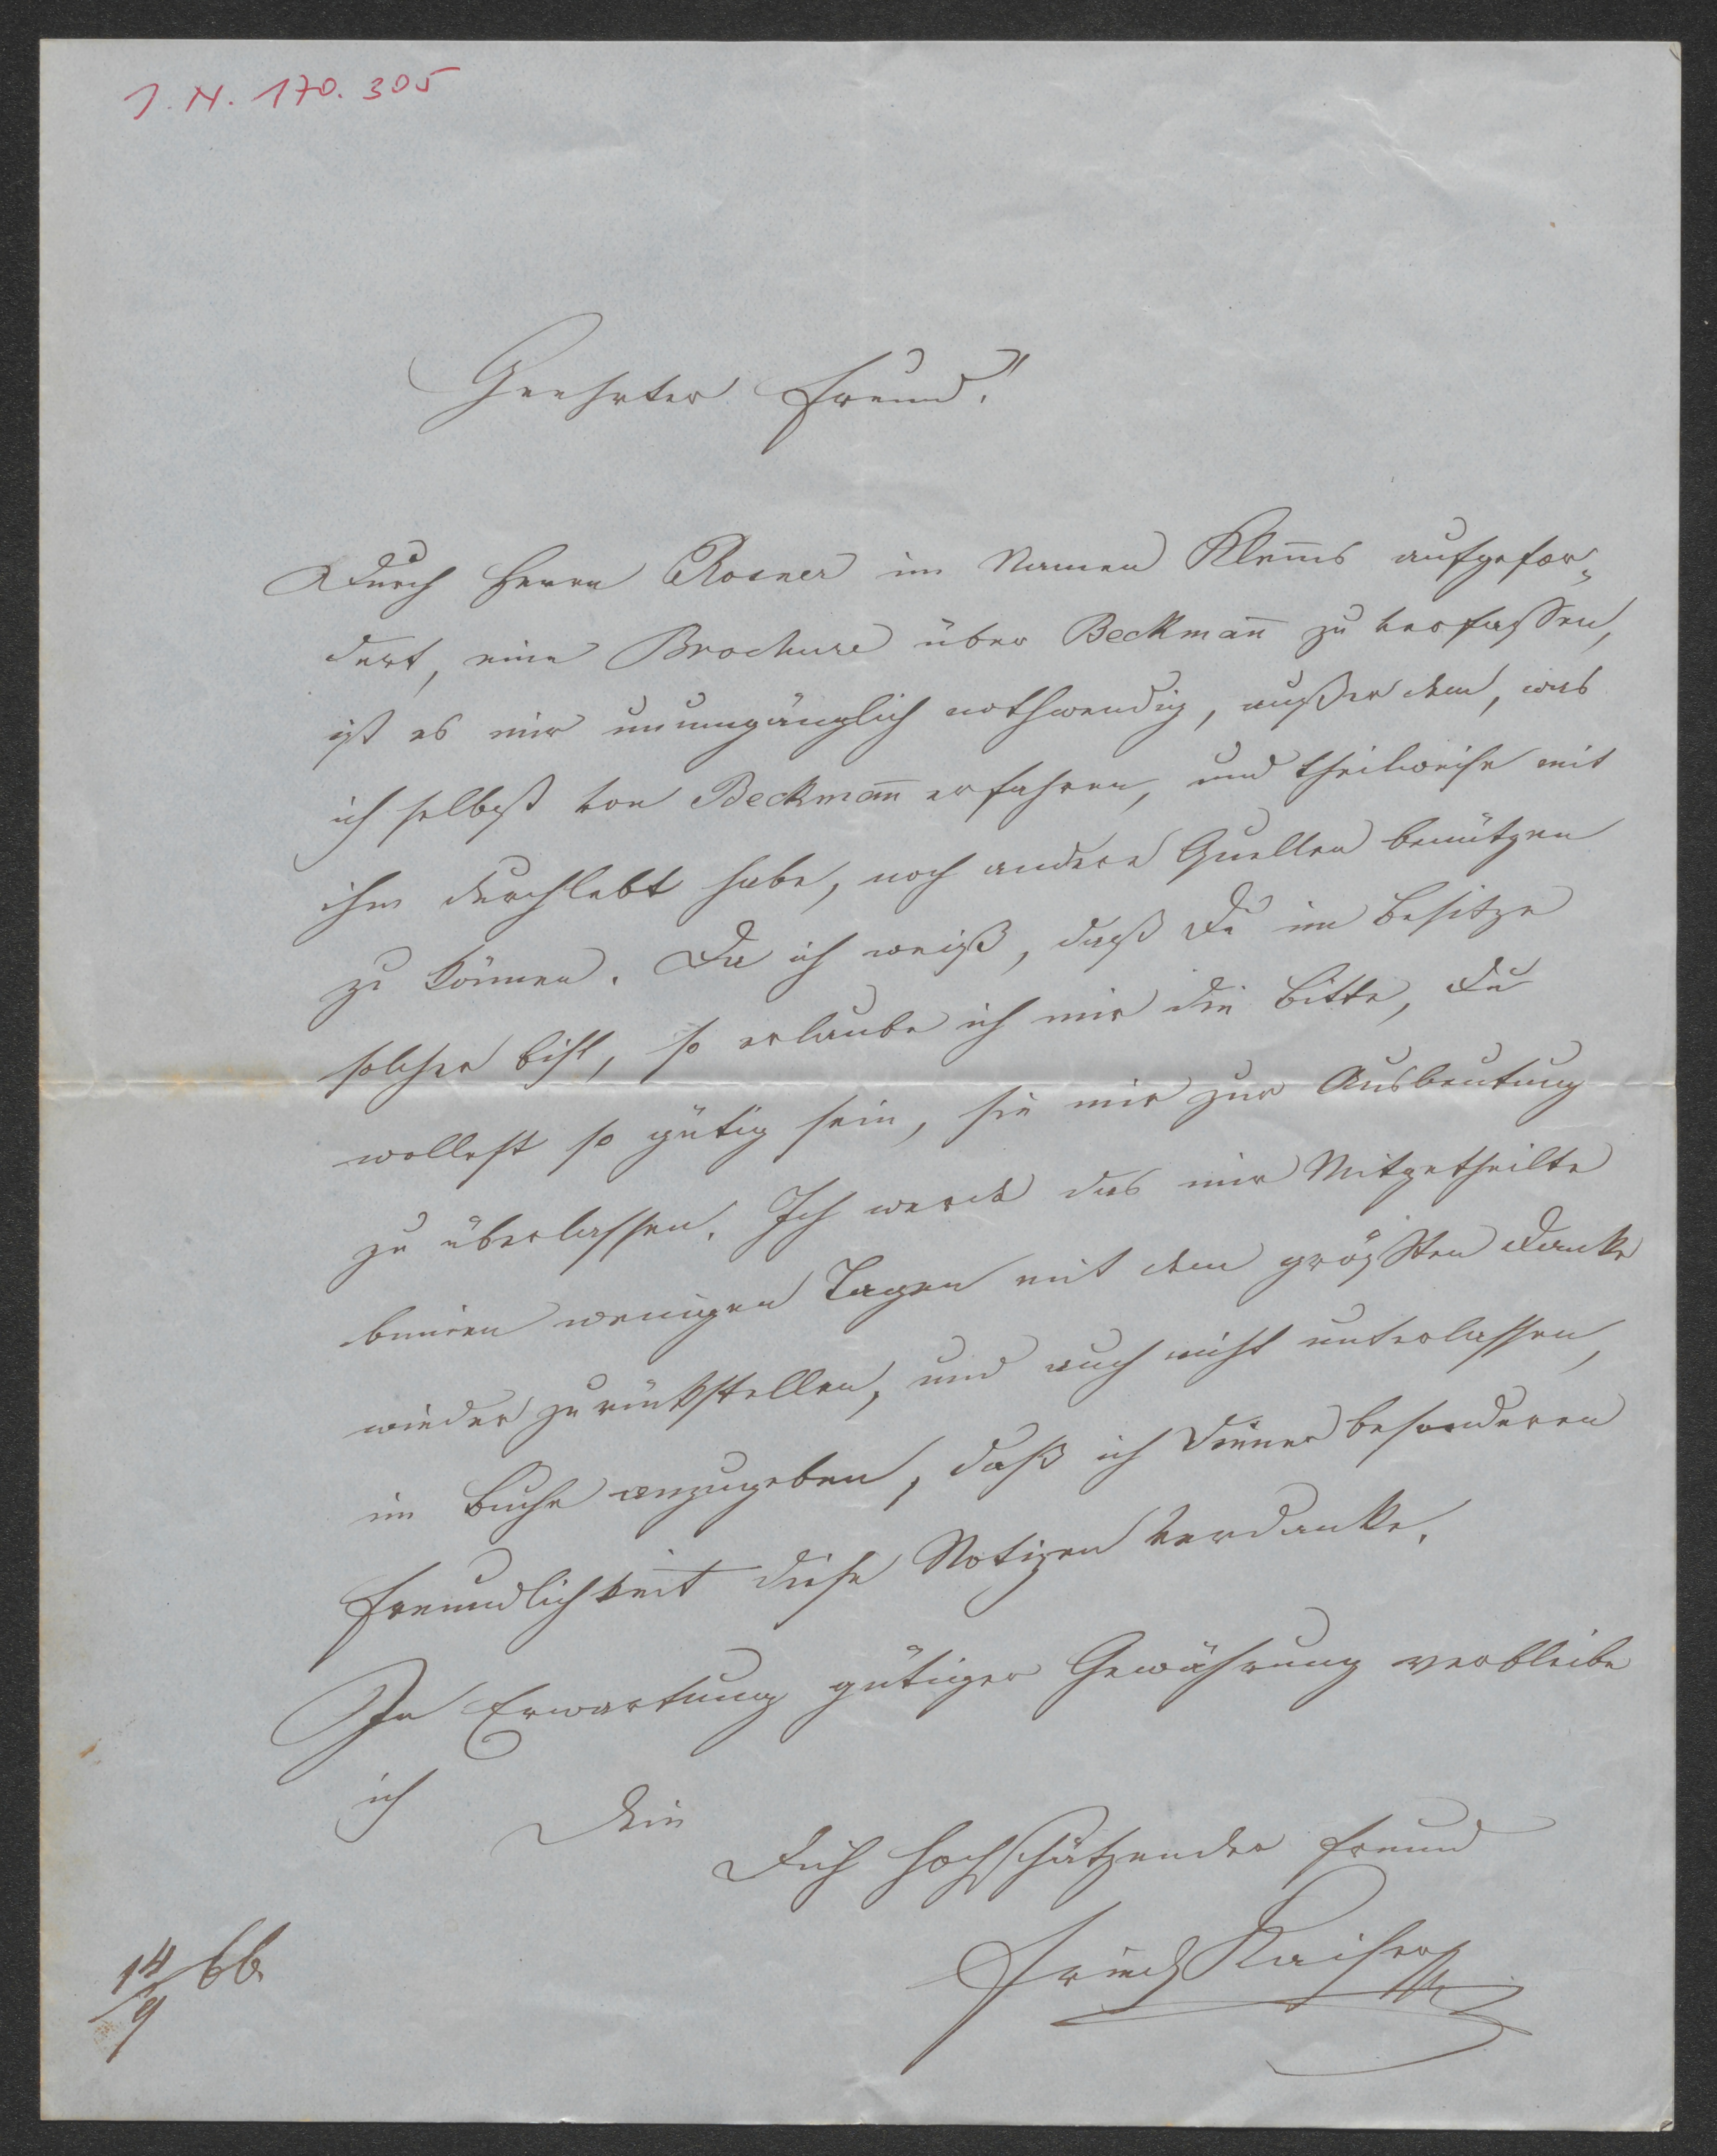 J. N. 170.305
Geehrter Freund!
Durch Herrn Rosner im Namen Klem̄s aufgefor-
dert, eine Brochure über Beckman̄ zu verfassen,
ist es mir unumgänglich nothwendig, außer dem, was
ich selbst von Beckman̄ erfahren, und theilweise mit
ihm durchlebt habe, noch andere Quellen benützen
zu können. Da ich weiß, daß Du im Besitze
solcher bist, so erlaube ich mir die Bitte, Du
wollest so gütig sein, sie mir zur Ausbeutung
zu überlassen. Ich werde das mir Mitgetheilte
binnen wenigen Tagen mit dem größten Danke
wieder zurückstellen, und auch nicht unterlassen,
im Buche anzugeben, daß ich Deiner besonderen
Freundlichkeit diese Notizen verdanke.
In Erwartung gütiger Gewährung verbleibe
ich Dein
Dich hochschätzender Freund
Friedr Kaiser
14/9 66